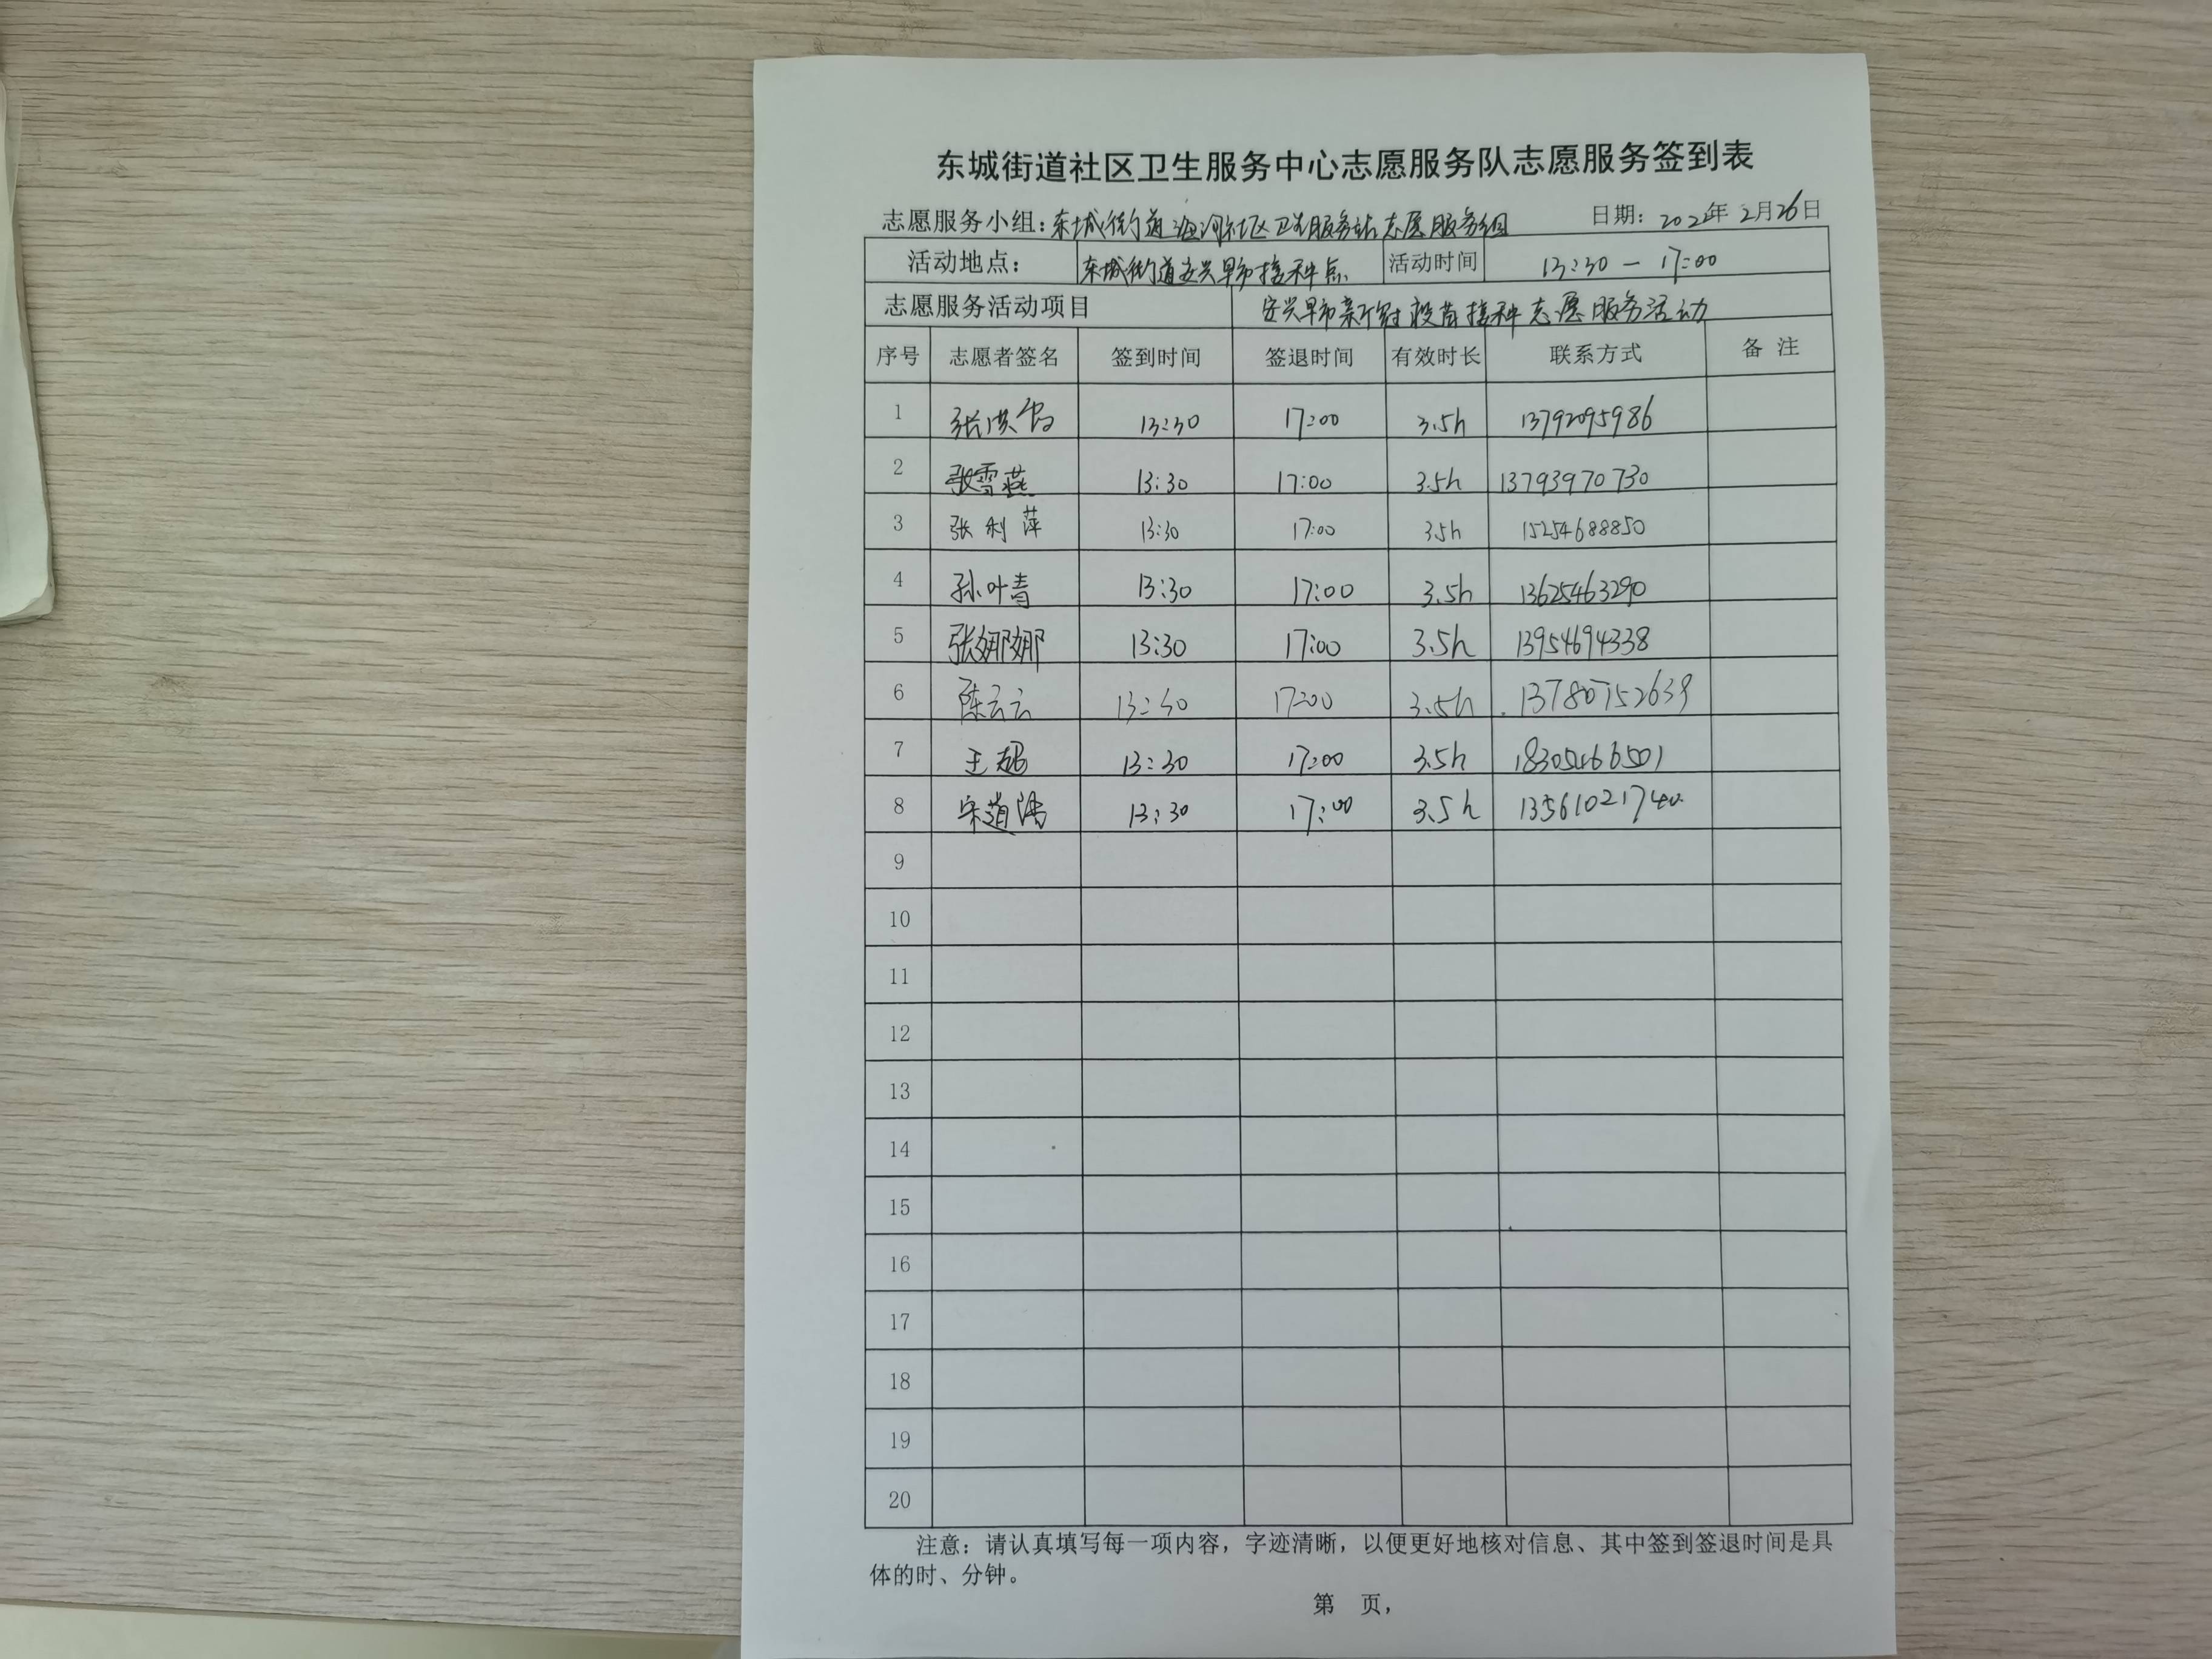 东城街道社区卫生服务中心志愿服务队志愿服务签到表
志愿服务小组：东城街道海河社区卫生服务站志愿服务组 日期：2022年2月26日
活动地点： 东城街道安兴早市接种点 活动时间 13:30-17:00
志愿服务活动项目 安兴早市新冠疫苗接种志愿服务活动
序号 志愿者签名 签到时间 签退时间 有效时长 联系方式 备注
1 13:30 17:00 3.5h 13792095986
2 张雪燕 13:30 17:00 3.5h 13793970730
3 张利萍 13:30 17:00 3.5h 15254688850
4 孙叶青 13:30 17:00 3.5h 13625463290
5 张娜娜 13:30 17:00 3.5h 13954694338
6 陈云云 13:30 17:00 3.5h 13780752639
7 王超 13:30 17:00 3.5h 18305466501
8 宋道 13:30 17:00 3.5h 13561021740
9
10
11
12
13
14
15
16
17
18
19
20
注意：请认真填写每一项内容，字迹清晰，以便更好地核对信息、其中签到签退时间是具
体的时、分钟。
第 页，